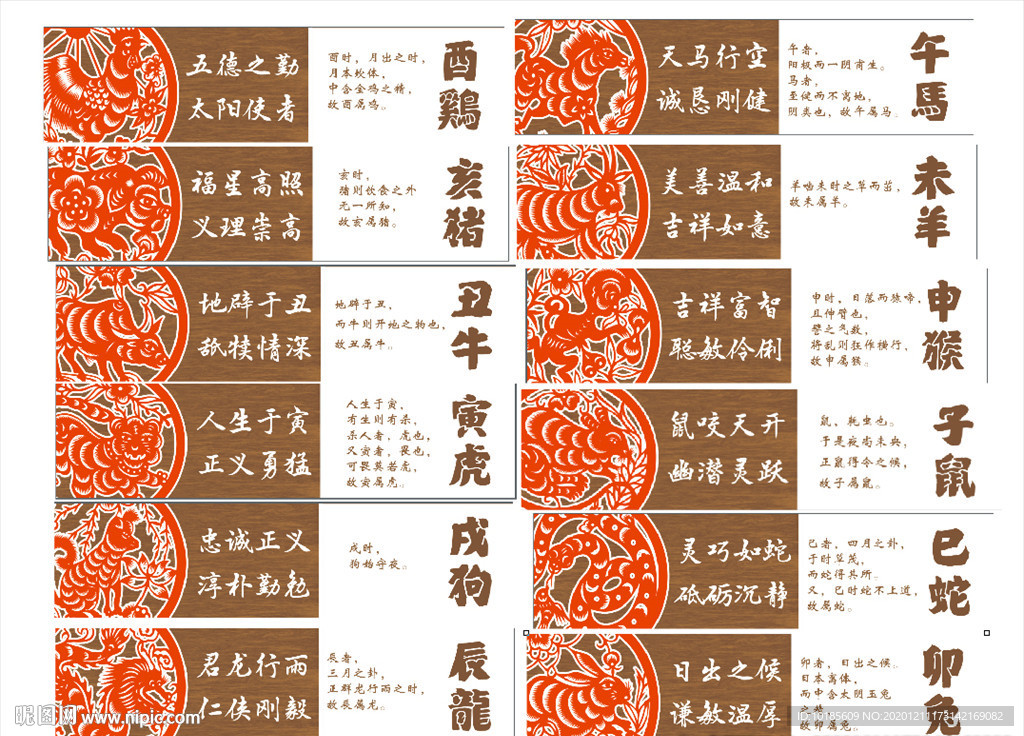 五德之勤
太阳使者
酉时，月出之时，
月本坎体，
中含金鸡之精，
故酉属鸡。
酉
鷄
天马行空
诚恳刚健
午者，
阳极而一阴甫生。
马者，
至健而不离地，
阴类也，故午属马。
午
馬
福星高照
义理崇高
亥时，
猪则饮食之外
无一所知，
故亥属猪。
亥
猪
美善温和
吉祥如意
羊啮未时之草而茁，
故未属羊。
未
羊
地辟于丑
舐犊情深
地辟于丑，
而牛则开地之物也，
故丑属牛。
丑
牛
吉祥富智
聪敏伶俐
申时，日落而猿啼，
且伸臂也，
譬之气数，
将乱则狂作横行，
故申属猴。
申
猴
人生于寅
正义勇猛
人生于寅，
有生则有杀，
杀人者，虎也，
又寅者，畏也，
可畏莫若虎，
故寅属虎。
寅
虎
鼠咬天开
幽潜灵跃
鼠，耗虫也。
于是夜尚未央，
正鼠得令之候，
故子属鼠。
子
鼠
忠诚正义
淳朴勤勉
戌时，
狗始守夜。
戌
狗
灵巧如蛇
砥砺沉静
巳者，四月之卦，
于时草茂，
而蛇得其所。
又，巳时蛇不上道，
故属蛇。
巳
蛇
君龙行雨
仁侠刚毅
辰者，
三月之卦，
正群龙行雨之时，
故辰属龙。
辰
龍
日出之候
谦敏温厚
卯者，日出之候。
日本离体，
而中含太阴玉兔
故卯属兔。
卯
兔
昵图网 www.nipic.com
ID:10185609 NO:20201211173142169082